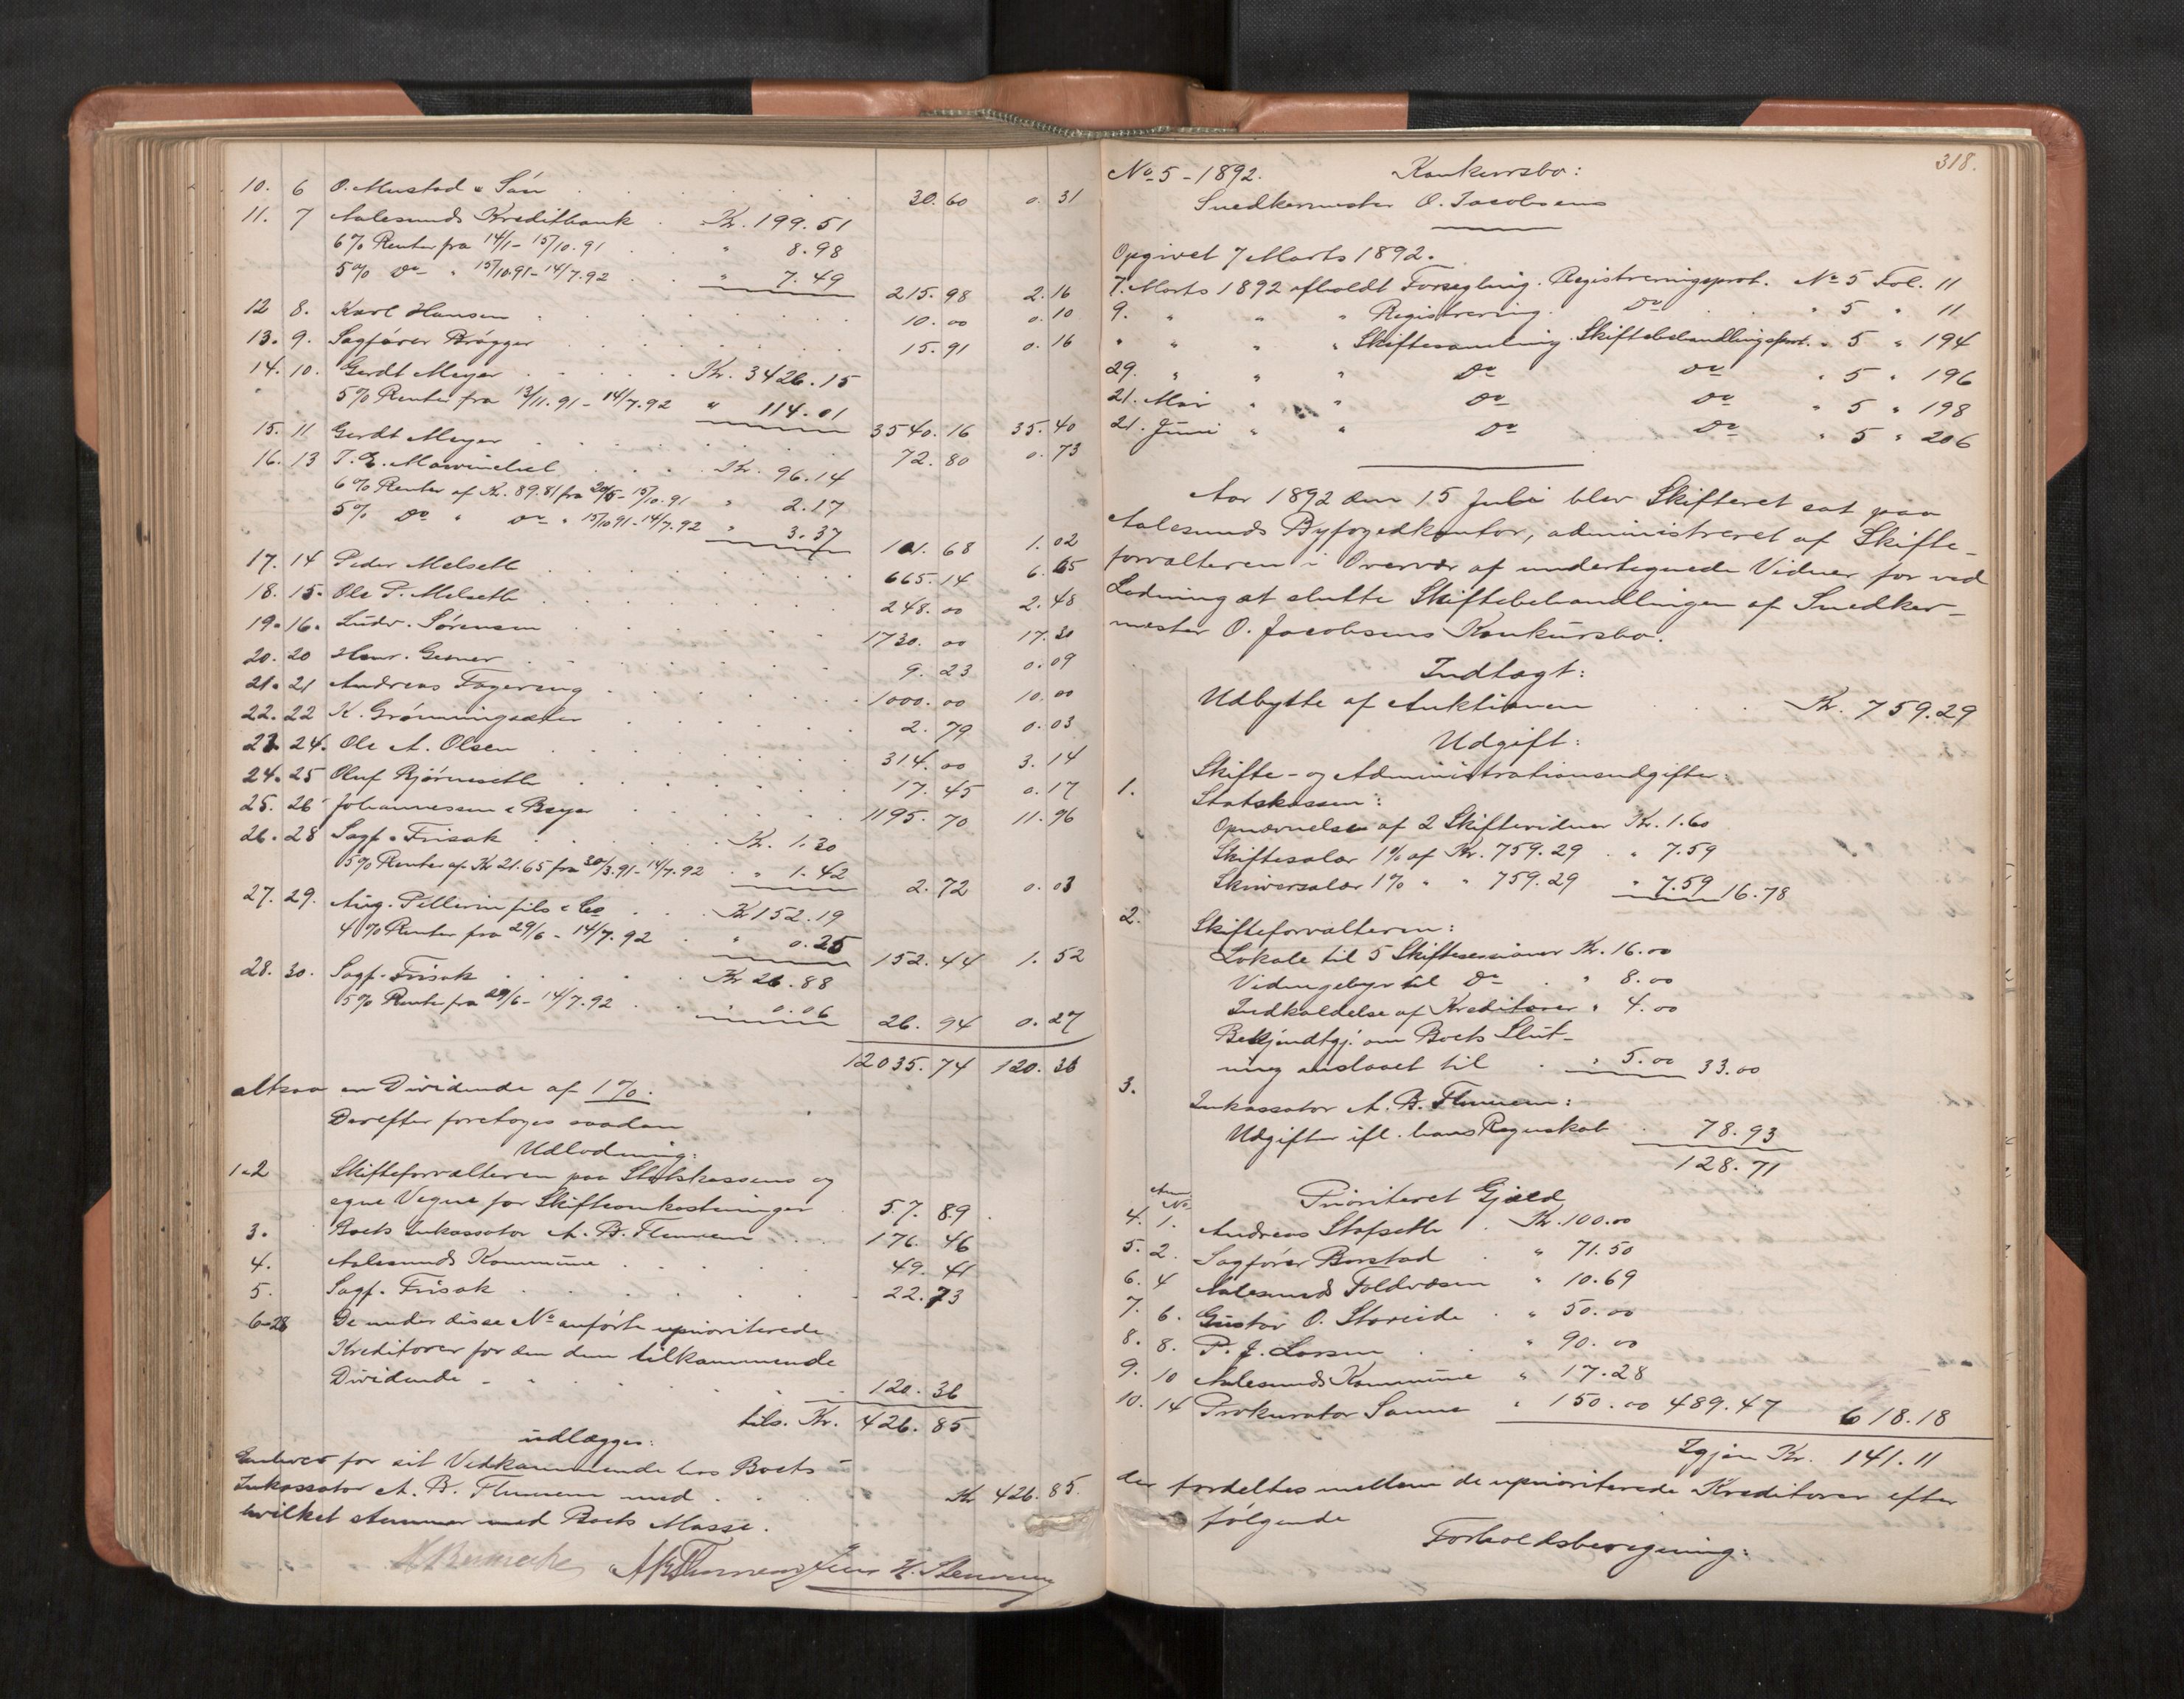 10. 6 O. Mustad & Søn . . . . . 30. 60 0. 31
11. 7 Aalesunds Kreditbank . Kr. 199.51
6% Renter fra 14/1 - 15/10.91 . . " 8.98
5% Do " 15/10.91 - 14/7.92 . . " 7.49 215. 98 2. 16
12 8. Karl Hansen . . . . . 10. 00 0. 10
13. 9. Sagfører Brøgger . . . . . 15. 91 0. 16
14. 10. Gerdt Meyer . . . . . Kr. 3426.15
" 5% Renter fra 13/11.91 - 14/7.92 " 114.01 3540. 16 35. 40
15. 11 Gerdt Meyer . . . . . 72. 80 0. 73
16. 13 . . . . Kr. 96.14
6% Renter af Kr. 89.81 fra 20/5 - 15/10.91 " 2.17
5% Do " Do " 15/10 91 - 14/7.92 " 3.37 101. 68 1. 02
17. 14 Peder Melseth . . . . . 665. 14 6. 65
18. 15. Ole P. Melseth . . . . . 248. 00 2. 48
19. 16. Ludv. Sørensen . . . . . 1730. 00 17. 30
20. 20 . . . . . 9. 23 0. 09
21. 21 Andreas Fagereng . . . . . 1000. 00 10. 00
22. 22 K. Grønningsæter . . . . . 2. 79 0. 03
23 24. Ole A. Olsen . . . . . 314. 00 3. 14
24. 25 Oluf Bjørneseth . . . . . 17. 45 0. 17
25. 26 Johannessen & Beyer . . . . . 1195. 70 11. 96
26. 28 Sagf. Frisak . . . . . Kr. 1.30
5% Renter af Kr 21.65 fra 30/3.91 - 14/7.92 . " 1.42 2. 72 0. 03
27. 29. Aug. Pellerin fils & Co . . . Kr 152.19
4% Renter fra 29/6 - 14/7.92 . " 0.25 152. 44 1. 52
28. 30. Sagf. Frisak . . . . . Kr 26.88
5% Renter fra 29/6 - 14/7.92 . . " 0.06 26. 94 0. 27
12035. 74 120. 36
altsaa en Dividende af 1%.
Derefter foretoges saadan
Udlodning:
1-2 Skifteforvalteren paa Statskassens og
egne Vegne for Skifteomkostninger . 57. 89.
3. Boets Inkassator A. B. Flemmem . . 176. 46
4. Aalesunds Kommune . . . . . 49. 41
5. Sagf. Frisak . . . . . 22. 73
6-28 De under disse No anførte uprioriterede
Kreditorer for den dem tilkommende
Dividende . . . . . 120. 36
tils. Kr. 426. 85
udlægges:
Enhver for sit Vedkommende hos Boets
Inkassator A. B. Flemmem med . . . . Kr 426. 85.
hvilket stemmer med Boets Masse.
318.
No 5 - 1892. Konkursbo:
Snedkermester O. Jacobsens
Opgivet 7 Marts 1892.
7. Marts 1892 afholdt Forsegling. Registreringsprot. No 5 Fol. 11
9. " " " Registrering. Do . . " 5 " 11
" " " " Skiftesamling. Skiftebehandlingsprot. " 5 " 194
29. " " " Do Do " 5 " 196
21. Mai " " Do Do " 5 " 198
21. Juni " " Do Do " 5 " 206
Aar 1892 den 15 Juli blev Skifteret sat paa
Aalesunds Byfogedkontor, administreret af Skifte-
forvalteren i Overvær af undertegnede Vidner for ved
Lodning at slutte Skiftebehandlingen af Snedker-
mester O. Jacobsens Konkursbo.
Indtægt:
Udbytte af Auktionen . . . Kr. 759.29
Udgift:
Skifte- og Administrationsudgifter:
1. Statskassen:
Opnævnelse af 2 Skiftevidner Kr. 1.60
Skiftesalær 1% af Kr. 759.29 . " 7.59
Skriversalær 1% " " 759.29 " 7.59 16.78
2. Skifteforvalteren:
Lokale til 5 Skiftesessioner Kr. 16.00
Vidnegebyr til Do . " 8.00
Indkaldelse af Kreditorer " 4.00
Bekjendtgj. om Boets Slut-
ning anslaaet til . " 5.00 33.00
3. Inkassator A. B. Flemmem:
Udgifter ifl. hans Regnskab . 78.93
128.71
Anm. No. Prioriteret Gjæld
4. 1. Andreas Stafseth . Kr. 100.00
5. 2. Sagfører Borstad . " 71.50
6. 4 Aalesunds Toldvæsen " 10.69
7. 6. Gustav O. Storeide . " 50.00
8. 8. P. J. Larsen . . " 90.00
9. 10 Aalesunds Kommune " 17.28
10. 14 Prokurator Sanne " 150.00 489.47 618.18
Igjen Kr. 141.11
der fordeltes mellem de uprioriterede Kreditorer efter
følgende
Forholdsberegning: